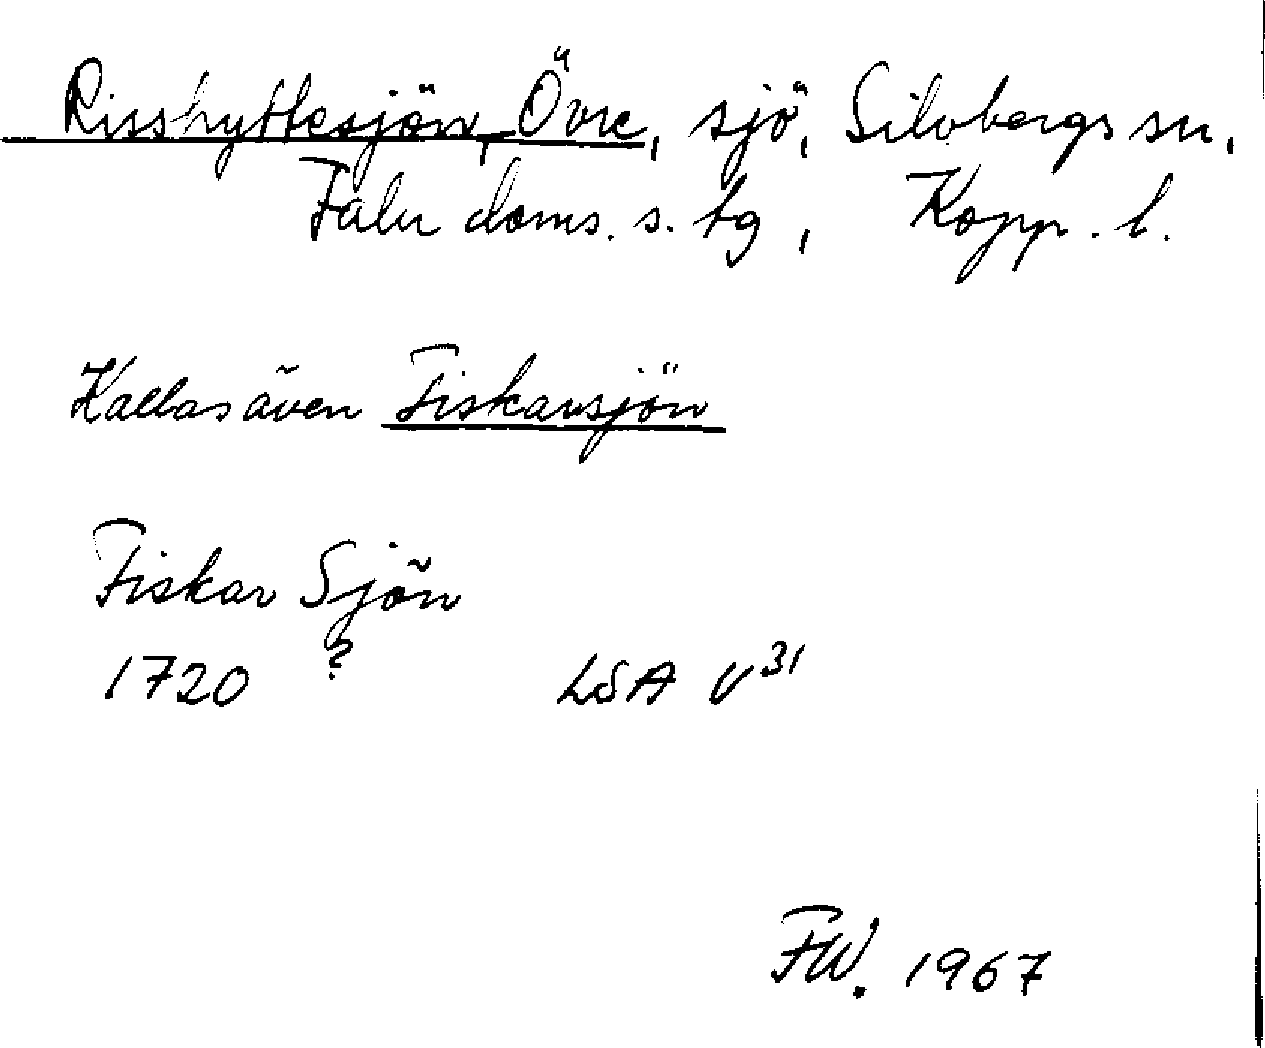 Risshyttesjön, Övre, sjö, Silvbergs sn,
Falu doms. s. tg, Kopp. l.
Kallas även Fiskarsjön
Fiskar Sjön
1720 ? LSA V³¹
FW. 1967